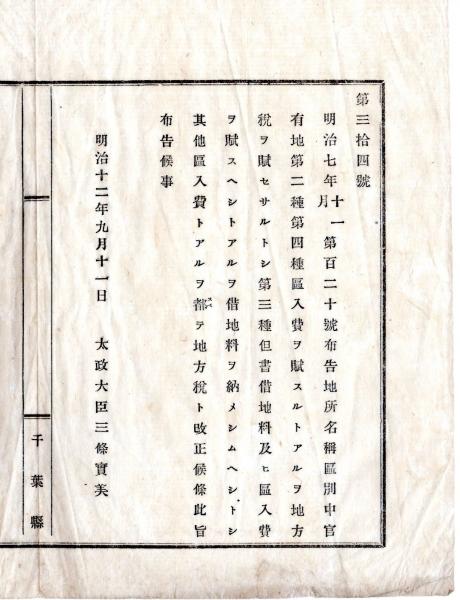 第三拾四號
明治七年十一月第百二十號布告地所名稱區別中官
有地第二種第四種區入費ヲ賦スルトアルヲ地方
税ヲ賦セサルトシ第三種但書借地料及ヒ區入費
ヲ賦スヘシトアルヲ借地料ヲ納メシムヘシトシ
其他區入費トアルヲ都テ地方税ト改正候條此旨
布告候事
明治十二年九月十一日 太政大臣三條實美
千葉縣